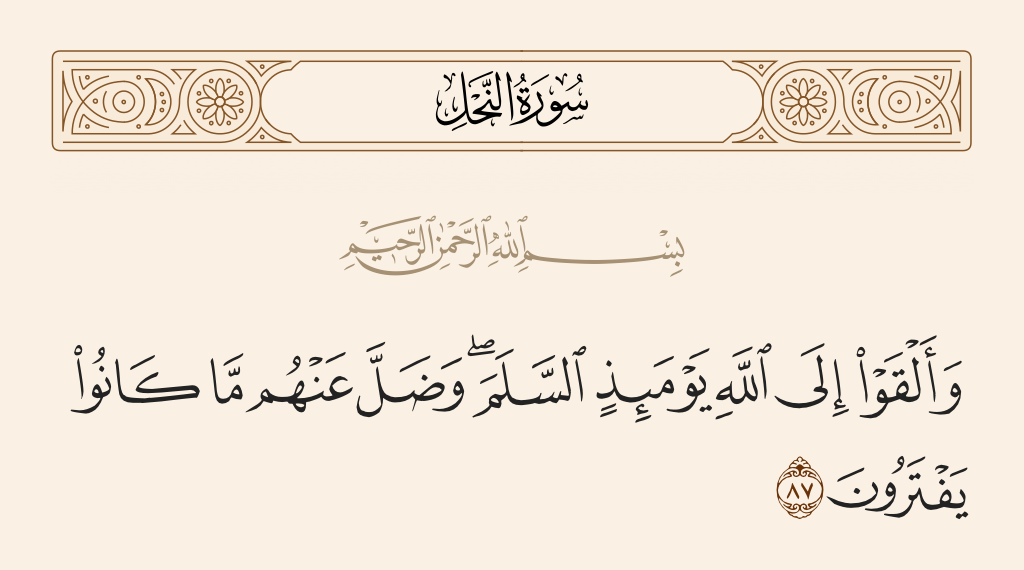 سُورَةُ النَّحْلِ
بِسْمِ ٱللَّهِ ٱلرَّحْمَٰنِ ٱلرَّحِيمِ
وَأَلْقَوْا۟ إِلَى ٱللَّهِ يَوْمَئِذٍ ٱلسَّلَمَ ۖ وَضَلَّ عَنْهُم مَّا كَانُوا۟
يَفْتَرُونَ ٨٧